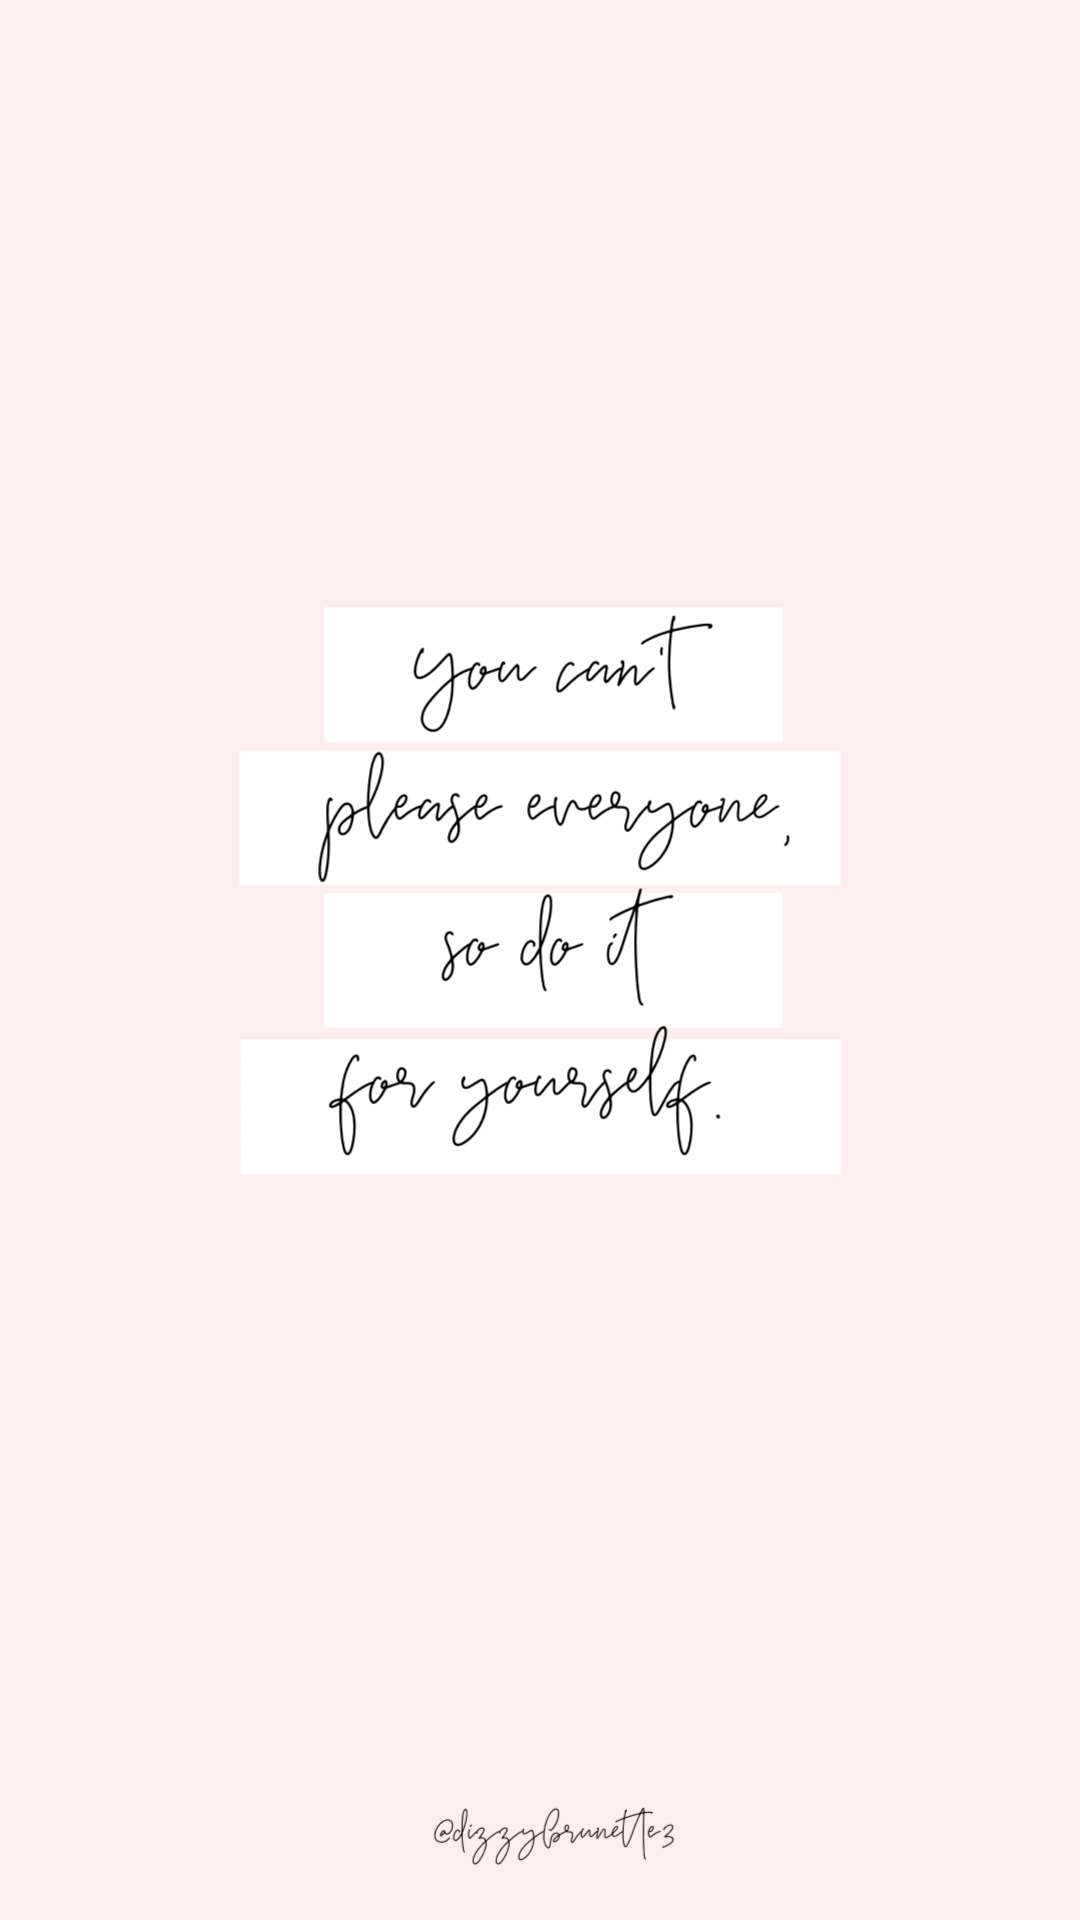 you can't
please everyone,
so do it
for yourself.
@dizzybrunette3